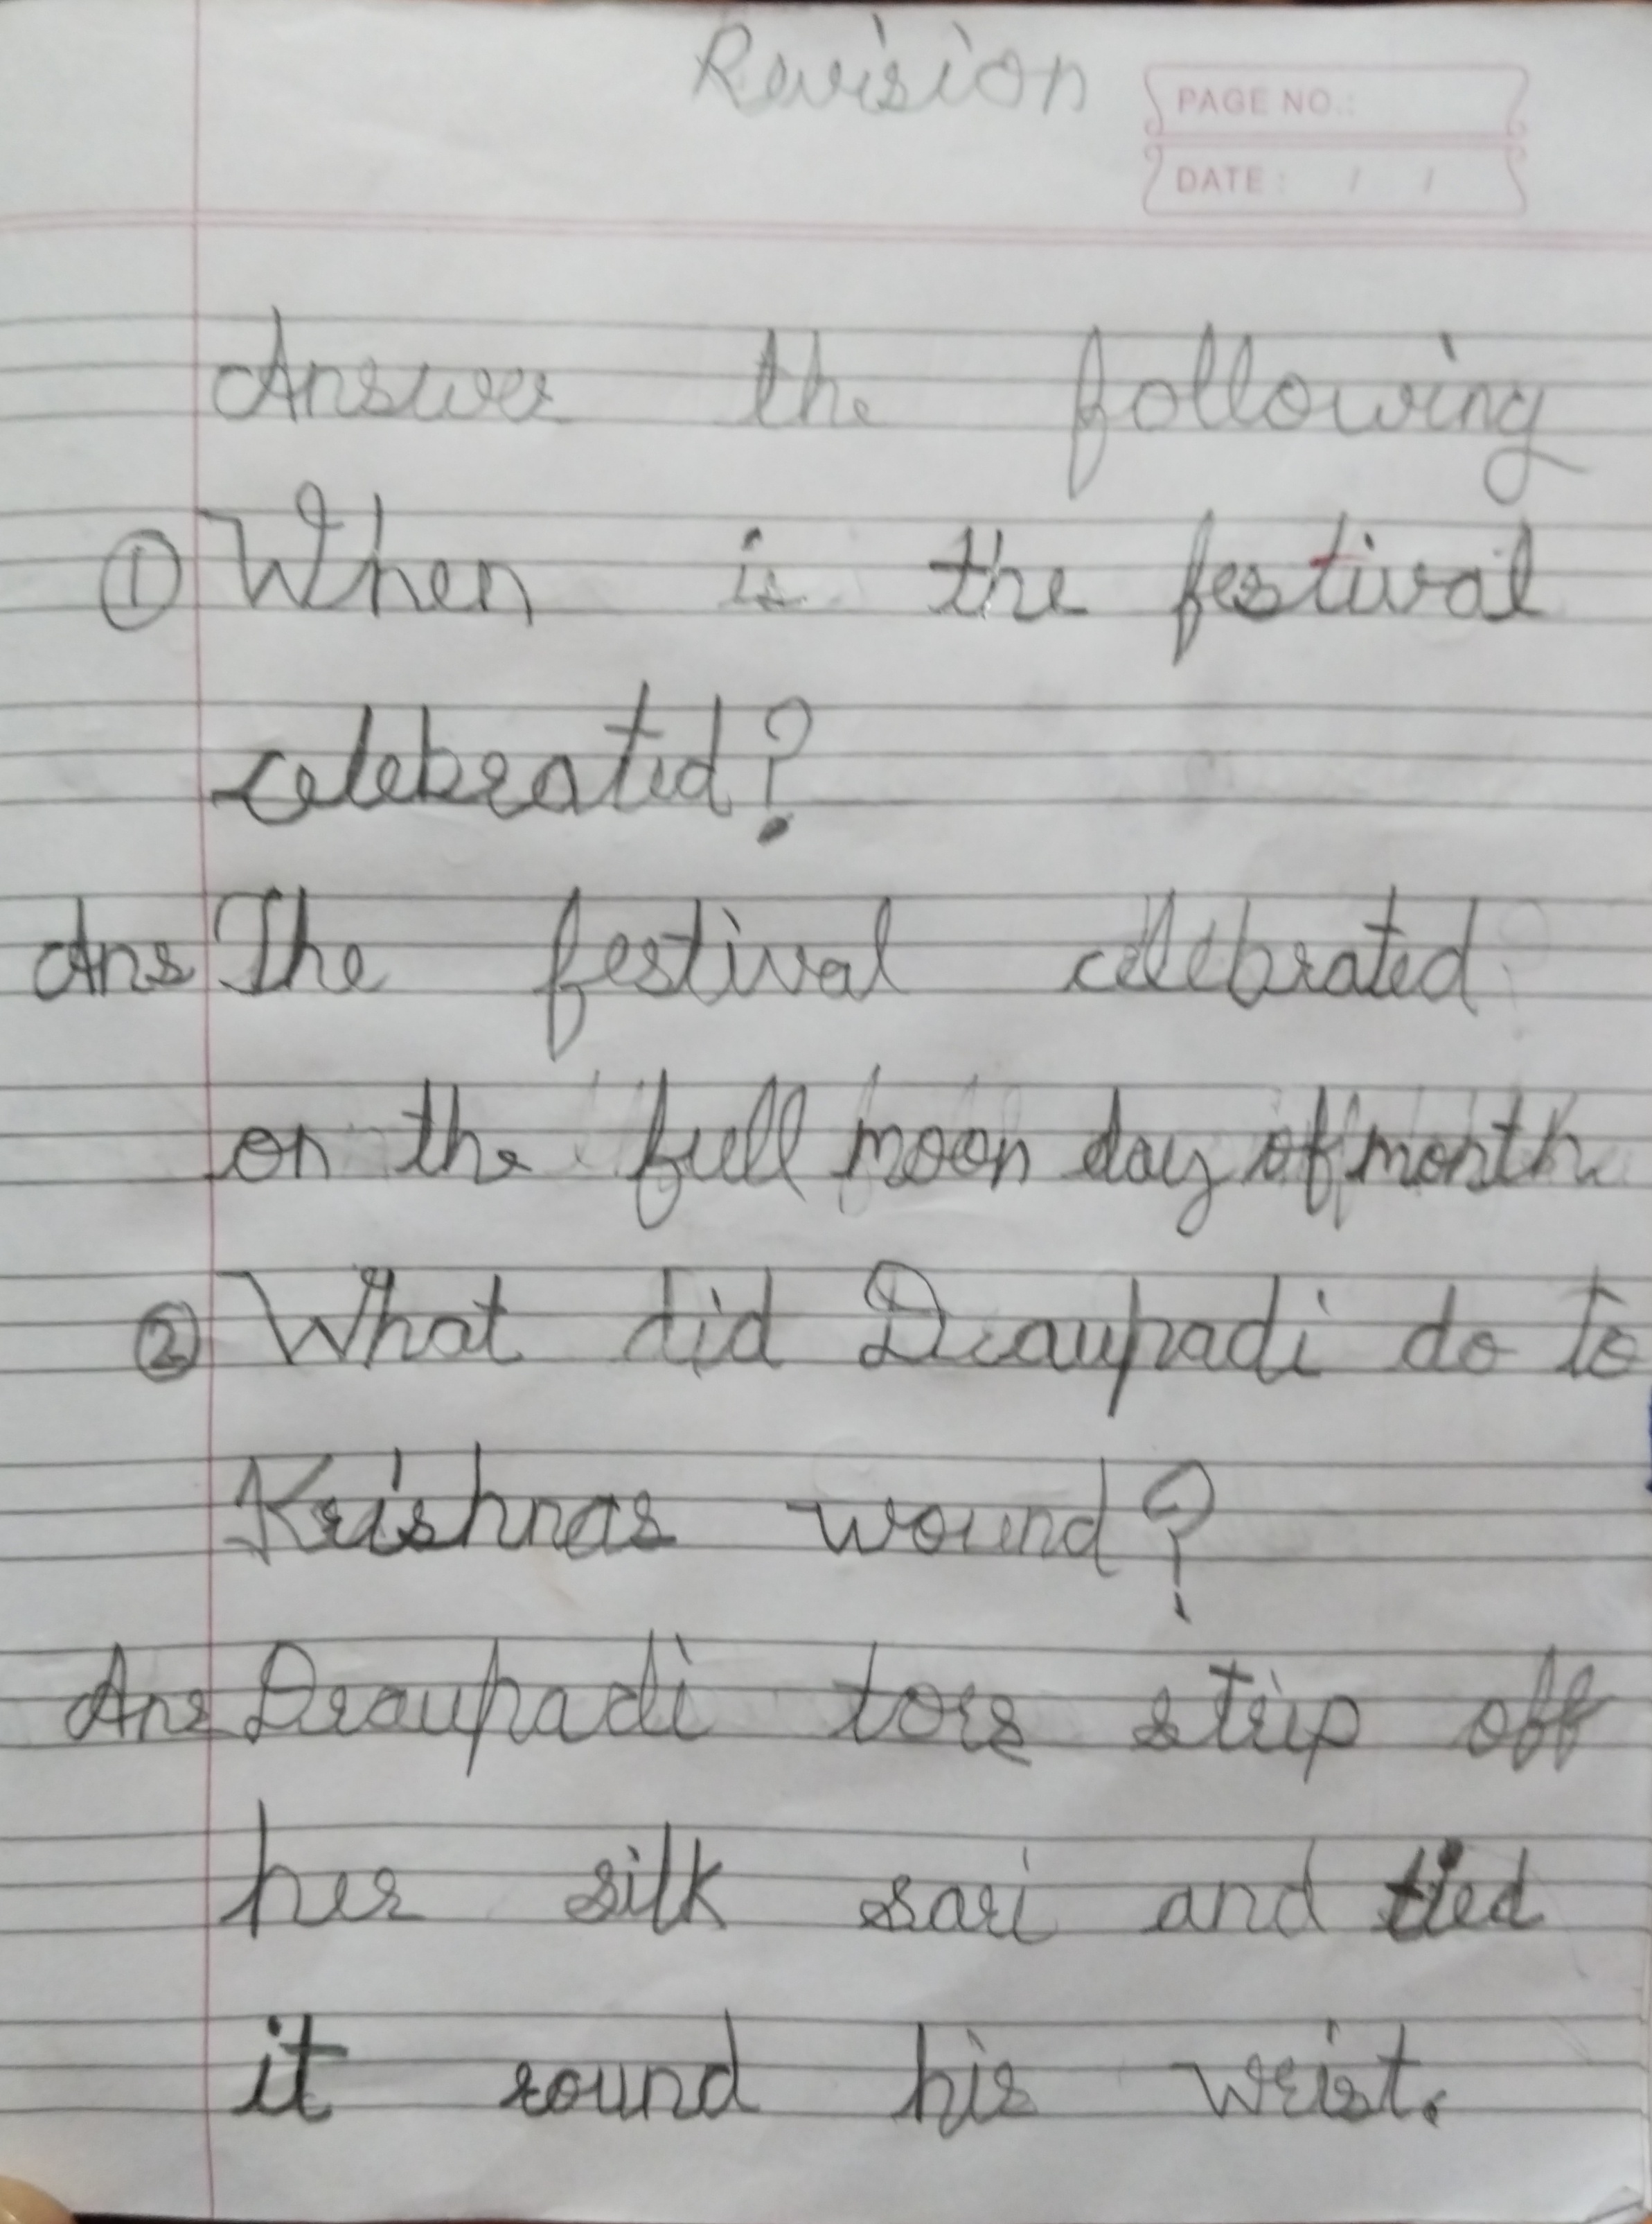 Revision
PAGE NO.:
DATE: / /
Answer the following
① When is the festival
celebrated?
Ans The festival celebrated
on the full moon day of month
② What did Draupadi do to
Krishnas wound?
Ans Draupadi tore strip off
her silk sari and tied
it round his wrist.